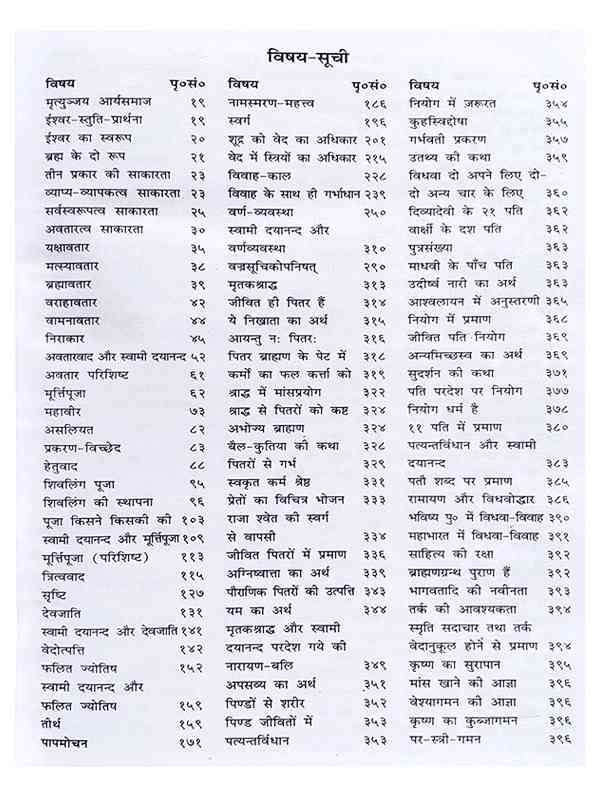 विषय-सूची
विषय पृ०सं०
मृत्युञ्जय आर्यसमाज १९
ईश्वर-स्तुति-प्रार्थना १९
ईश्वर का स्वरूप २०
ब्रह्म के दो रूप २१
तीन प्रकार की साकारता २३
व्याप्य-व्यापकत्व साकारता २३
सर्वस्वरूपत्व साकारता २५
अवतारत्व साकारता ३०
यक्षावतार ३५
मत्स्यावतार ३८
ब्रह्मावतार ३९
वराहावतार ४२
वामनावतार ४४
निराकार ४५
अवतारवाद और स्वामी दयानन्द ५२
अवतार परिशिष्ट ६१
मूर्त्तिपूजा ६२
महावीर ७३
असलियत ८२
प्रकरण-विच्छेद ८३
हेतुवाद ८८
शिवलिंग पूजा ९५
शिवलिंग की स्थापना ९६
पूजा किसने किसकी की १०३
स्वामी दयानन्द और मूर्त्तिपूजा १०९
मूर्त्तिपूजा (परिशिष्ट) ११३
त्रित्ववाद ११५
सृष्टि १२७
देवजाति १३१
स्वामी दयानन्द और देवजाति १४१
वेदोत्पत्ति १४२
फलित ज्योतिष १५२
स्वामी दयानन्द और
फलित ज्योतिष १५९
तीर्थ १५९
पापमोचन १७१
विषय पृ०सं०
नामस्मरण-महत्त्व १८६
स्वर्ग १९६
शूद्र को वेद का अधिकार २०१
वेद में स्त्रियों का अधिकार २१५
विवाह-काल २२८
विवाह के साथ ही गर्भाधान २३९
वर्ण-व्यवस्था २५०
स्वामी दयानन्द और
वर्णव्यवस्था ३१०
वज्रसूचिकोपनिषत् २९०
मृतकश्राद्ध ३१३
जीवित ही पितर हैं ३१४
ये निखाता का अर्थ ३१५
आयन्तु नः पितरः ३१६
पितर ब्राह्मण के पेट में ३१८
कर्मों का फल कर्त्ता को ३१९
श्राद्ध में मांसप्रयोग ३२२
श्राद्ध से पितरों को कष्ट ३२४
अभोज्य ब्राह्मण ३२४
बैल-कुतिया की कथा ३२८
पितरों से गर्भ ३२९
स्वकृत कर्म श्रेष्ठ ३३१
प्रेतों का विचित्र भोजन ३३३
राजा श्वेत की स्वर्ग
से वापसी ३३४
जीवित पितरों में प्रमाण ३३६
अग्निष्वात्ता का अर्थ ३३९
पौराणिक पितरों की उत्पत्ति ३४३
यम का अर्थ ३४४
मृतकश्राद्ध और स्वामी
दयानन्द परदेश गये की
नारायण-बलि ३४९
अपसव्य का अर्थ ३५१
पिण्डों से शरीर ३५२
पिण्ड जीवितों में ३५३
पत्यन्तर्विधान ३५३
विषय पृ०सं०
नियोग में ज़रूरत ३५४
कुहस्विद्दोषा ३५५
गर्भवती प्रकरण ३५७
उतथ्य की कथा ३५९
विधवा दो अपने लिए दो-
दो अन्य चार के लिए ३६०
दिव्यादेवी के २१ पति ३६२
वार्क्षी के दश पति ३६२
पुत्रसंख्या ३६३
माधवी के पाँच पति ३६३
उदीर्ष्व नारी का अर्थ ३६३
आश्वलायन में अनुस्तरणी ३६५
नियोग में प्रमाण ३६८
जीवित पति नियोग ३६९
अन्यमिच्छस्व का अर्थ ३६९
सुदर्शन की कथा ३७१
पति परदेश पर नियोग ३७७
नियोग धर्म है ३७८
११ पति में प्रमाण ३८०
पत्यन्तर्विधान और स्वामी
दयानन्द ३८३
पतौ शब्द पर प्रमाण ३८५
रामायण और विधवोद्धार ३८६
भविष्य पु० में विधवा-विवाह ३९०
महाभारत में विधवा-विवाह ३९१
साहित्य की रक्षा ३९२
ब्राह्मणग्रन्थ पुराण हैं ३९२
भागवतादि की नवीनता ३९३
तर्क की आवश्यकता ३९४
स्मृति सदाचार तथा तर्क
वेदानुकूल होने से प्रमाण ३९४
कृष्ण का सुरापान ३९५
मांस खाने की आज्ञा ३९६
वेश्यागमन की आज्ञा ३९६
कृष्ण का कुब्जागमन ३९६
पर-स्त्री-गमन ३९६